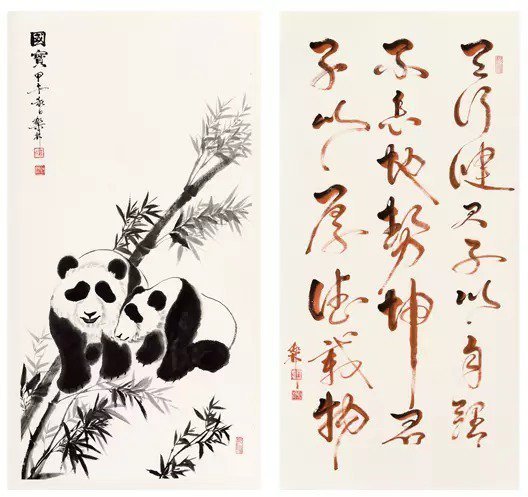 國寶
甲午
天行健君子以自強
不息地勢坤君
子以厚德載物